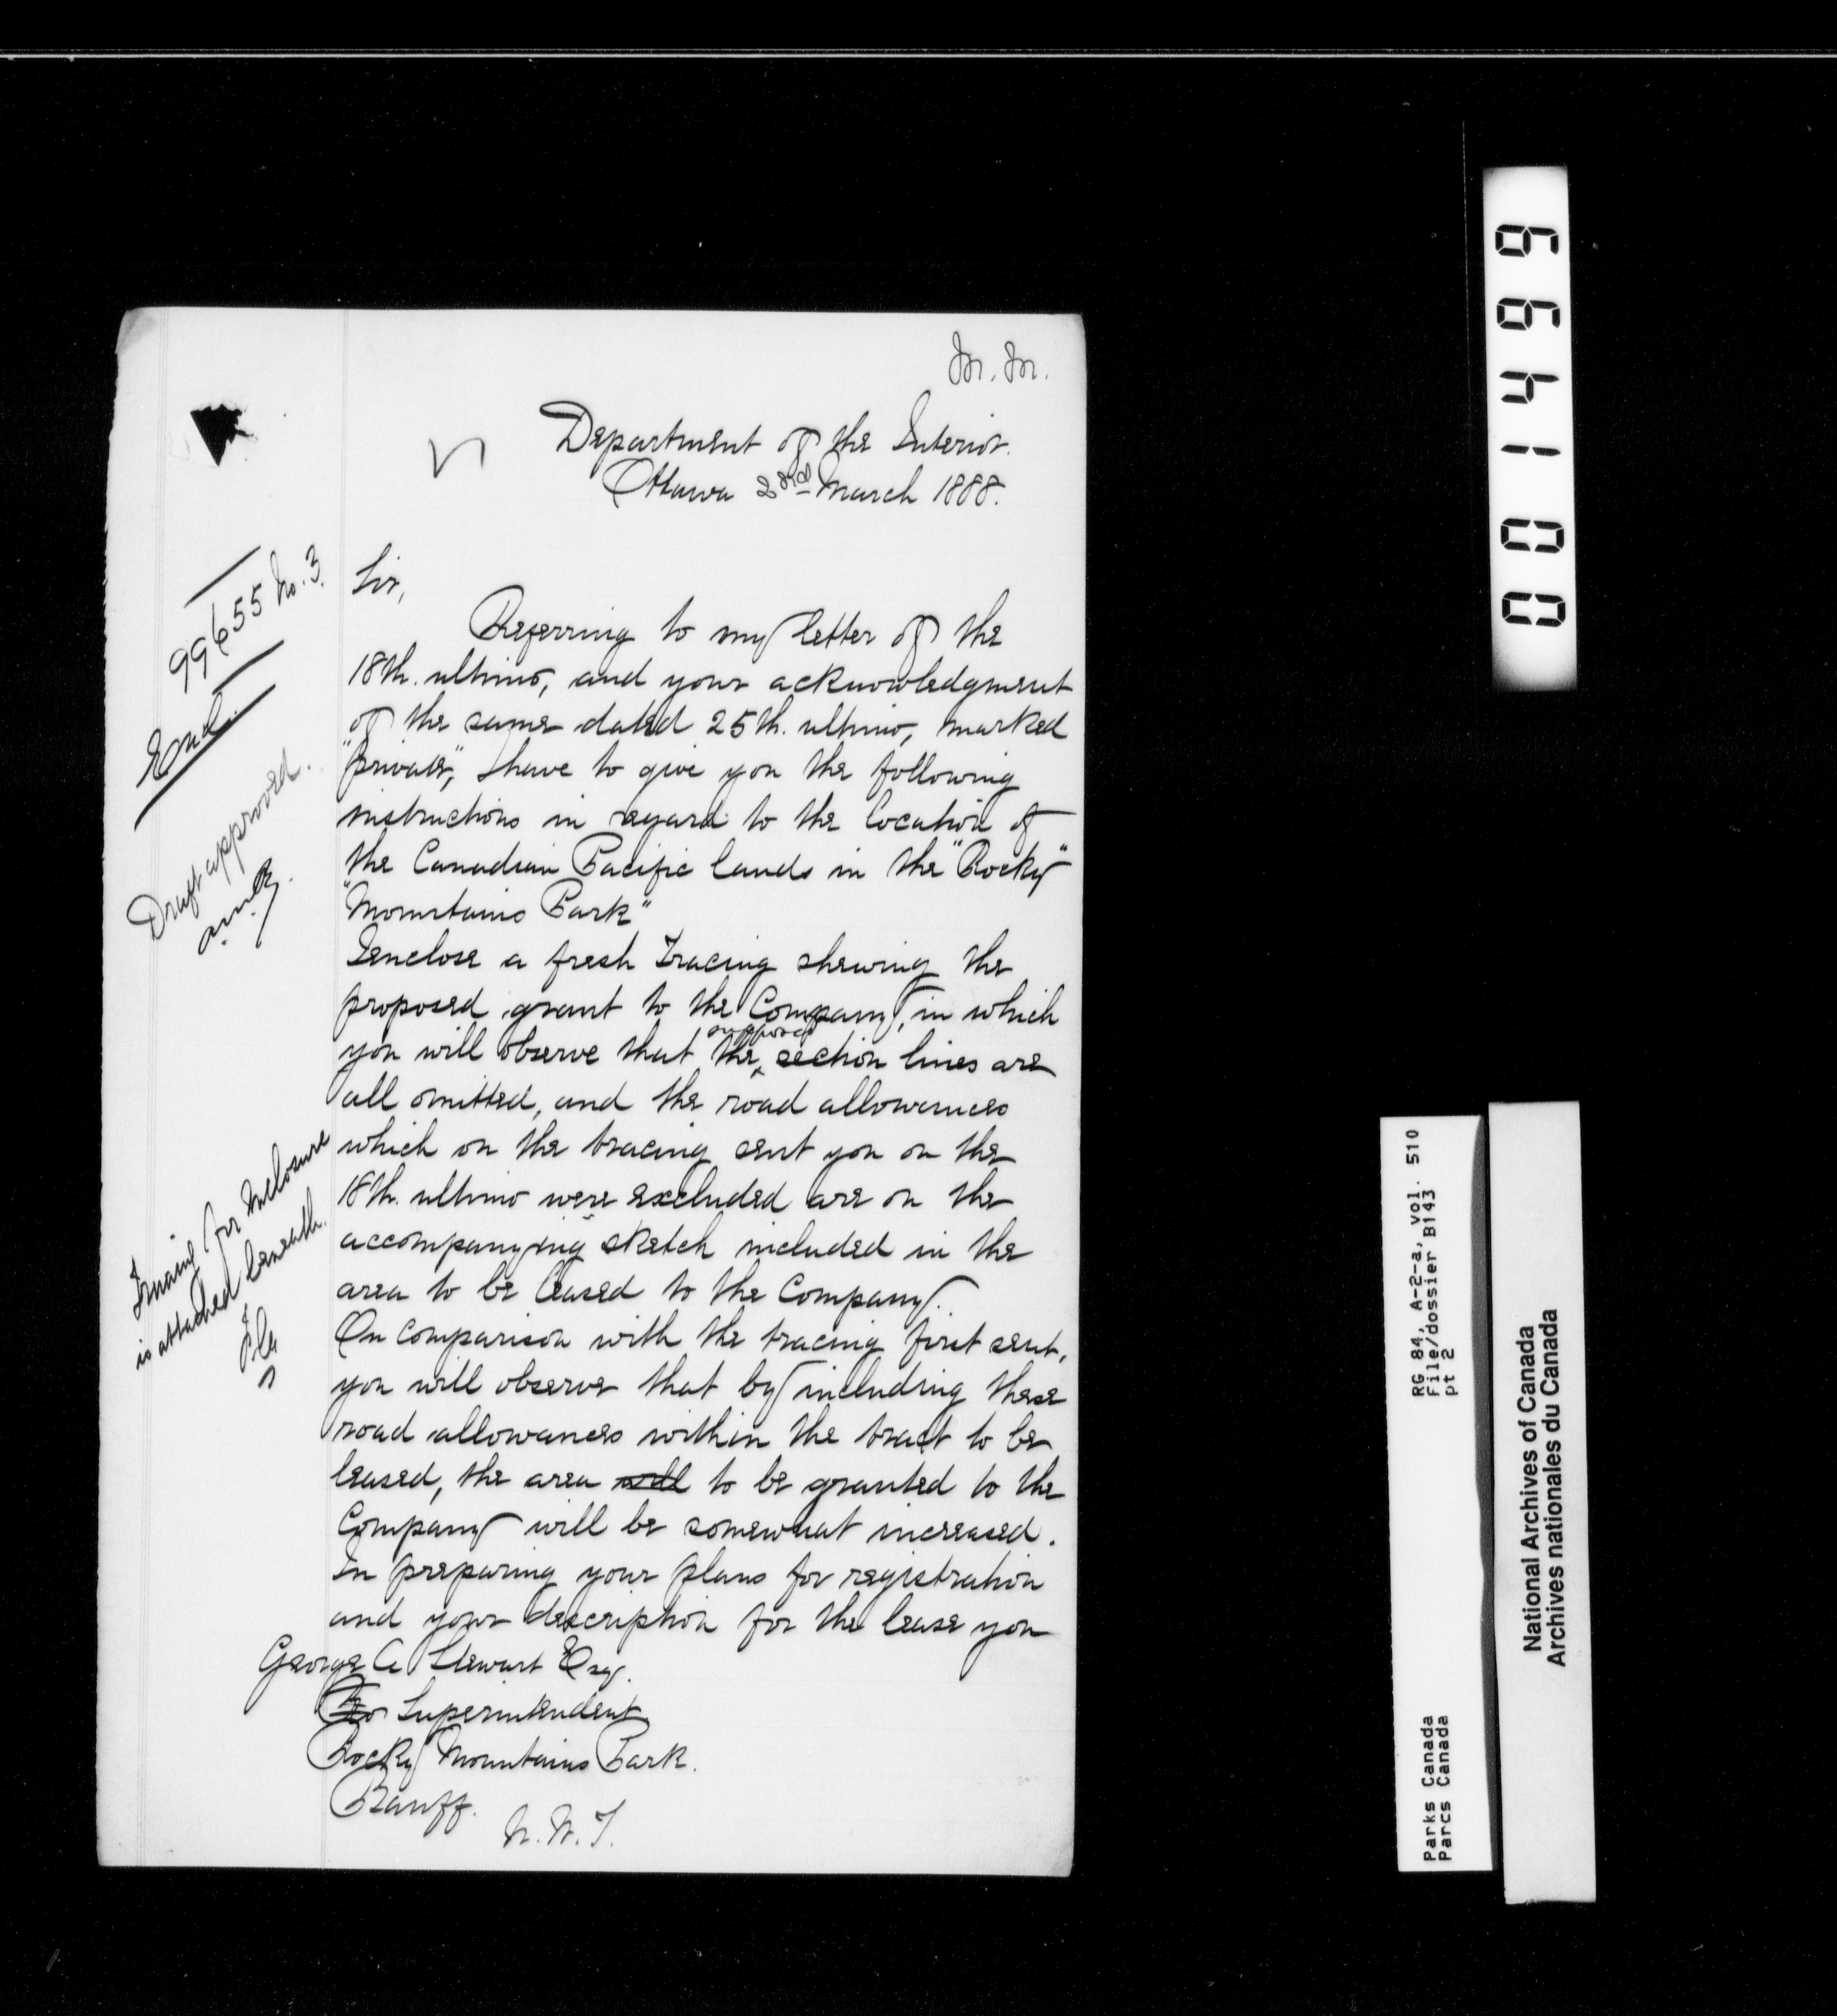 M. M.
Department of the Interior.
Ottawa 2nd March 1888.
99655 No. 3.
Encl.
Draft approved.
Sir,
Referring to my letter of the
18th. ultimo, and your acknowledgment
of the same dated 25th. ultimo, marked
"private", I have to give you the following
instructions in regard to the location of
the Canadian Pacific lands in the "Rocky"
"Mountains Park"
I enclose a fresh Tracing shewing the
proposed grant to the Company, in which
you will observe that the supposed section lines are
all omitted, and the road allowances
which on the tracing sent you on the
18th. ultimo were excluded are on the
accompanying sketch included in the
area to be leased to the Company.
On comparison with the tracing first sent,
you will observe that by including these
road allowances within the tract to be
leased, the area will to be granted to the
Company will be somewhat increased.
In preparing your plans for registration
and your description for the lease you
Tracing for Inclosure
is attached beneath.
George A Stewart Esq.
Superintendent
Rocky Mountains Park.
Banff.
N. W. T.
0014699
RG 84, A-2-a, vol. 510
File/dossier B143
pt 2
Parks Canada
Parcs Canada
National Archives of Canada
Archives nationales du Canada